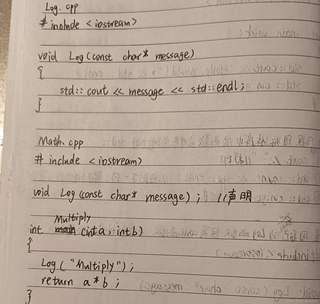 Log. cpp
# include <iostream>
void Log (const char* message)
{
std:: cout << message << std::endl;
}
Math. cpp
# include <iostream>
void Log (const char* message); //声明
Multiply
int (int a, int b)
{
Log ("Multiply");
return a*b;